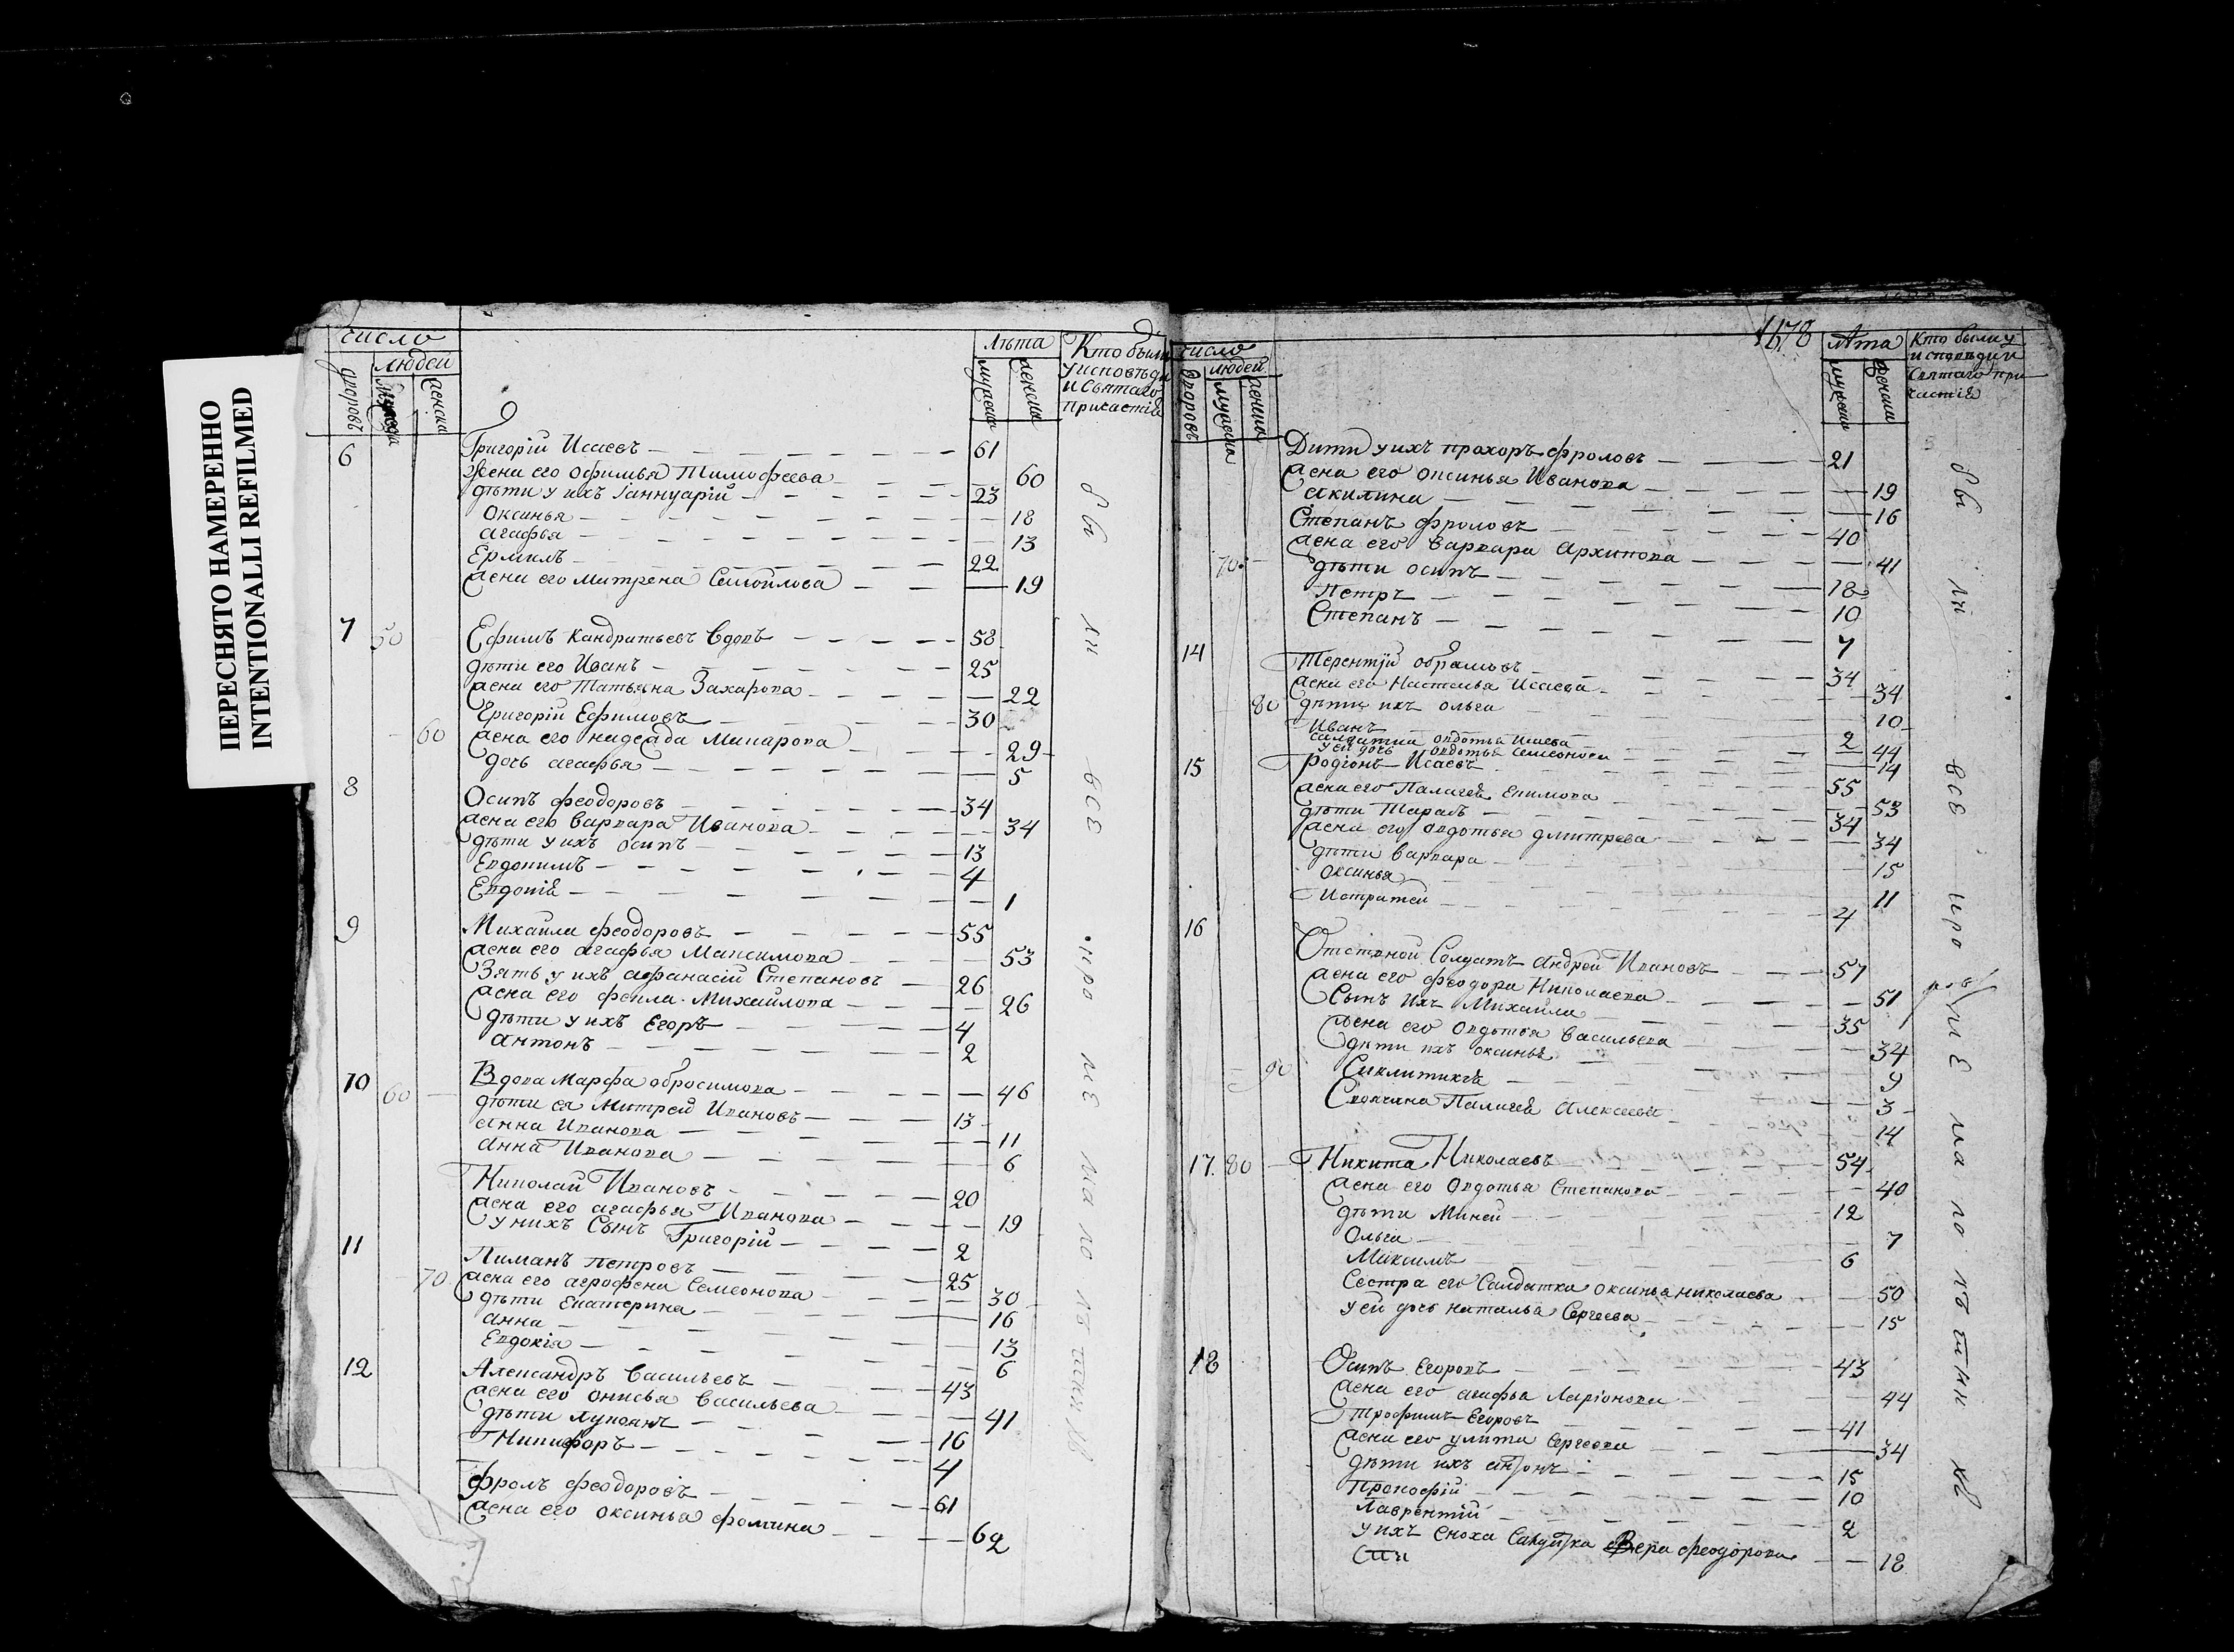 ПЕРЕСНЯТО НАМЕРЕННО
INTENTIONALLI REFILMED
число
людей
дворовъ
женска
лѣта
мужеска
женска
Кто были
у исповѣди
и Святаго
Причастія
6 Григорій Исаевъ 61
жена его Офимья Тимофеева 60
дѣти у ихъ Іаннуарій 23
Оксинья 18
агафья 13
Ермилъ 22
жена его Митрена Самойлова 19
7 50 Ефимъ Кандратьевъ вдовъ 58
дѣти его Иванъ 25
жена его Татьяна Захарова 22
Григорій Ефимовъ 30
60 жена его надежда Макарова 29
дочь агафья 5
8 Осипъ феодоровъ 34
жена его варвара Иванова 34
дѣти у ихъ Осипъ 13
Евдокимъ 4
Евдокія 1
9 Михайла феодоровъ 55
жена его агафья Максимова 53
Зять у ихъ афанасій Степановъ 26
жена его фекла Михайлова 26
дѣти у ихъ Егоръ 4
антонъ 2
10 60 Вдова Марфа обросимова 46
дѣти ея Митрей Ивановъ 13
анна Иванова 11
анна Иванова 6
Николай Ивановъ 20
жена его агафья Иванова 19
у нихъ Сынъ Григорій 2
11 Лиманъ петровъ 25
70 жена его агрофена Семеонова 30
дѣти Екатерина 16
анна 13
Евдокія 6
12 Александръ васильевъ 43
жена его онисья васильева 41
дѣти лукоянъ 16
Никифоръ 4
фролъ феодоровъ 61
жена его оксинья фомина 62
бы ли всѣ
1678
число
людей
дворовъ
мужеска
женска
лѣта
мужеска
женска
Кто были у
исповѣди и
Святаго при
частія
Дити у ихъ прохоръ фроловъ 21
жена его оксинья Иванова 19
акилина 16
Степанъ фроловъ 40
жена его варвара архипова 41
70 дѣти осипъ 18
Петръ 10
Степанъ 7
14 Терентій обрамовъ 34
жена его Настасья Исаева 34
80 дѣти ихъ ольга 10
Иванъ 2
салдатка овдотья Исаева 44
у ей дочь овдотья семеонова 14
15 родіонъ Исаевъ 55
жена его Палагея Екимова 53
дѣти Тарасъ 34
жена его овдотья дмитрева 34
дѣти варвара 15
оксинья 11
Истратей 4
16 Отставной Солдатъ андрей Ивановъ 57
жена его феодора Николаева 51
Сынъ ихъ Михайла 35
жена его овдотья васильева 34
дѣти ихъ оксинья 9
90 Сиклитикія 3
Своячина Палагея алексеева 14
17 80 Никита Николаевъ 54
жена его овдотья Степанова 40
дѣти Миней 12
Ольга 7
Максимъ 6
Сестра его Салдатка оксинья николаева 50
у ей дочь наталья Сергеева 15
18 Осипъ Егоровъ 43
жена его агафья Ларіонова 44
Трофимъ Егоровъ 41
жена его улита сергеева 34
дѣти ихъ антонъ 15
Прокофій 10
Лаврентій 2
у ихъ сноха Салдатка Вера феодорова 18
бы ли всѣ